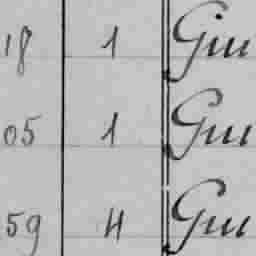 18 1 Giu
05 1 Giu
59 4 Giu